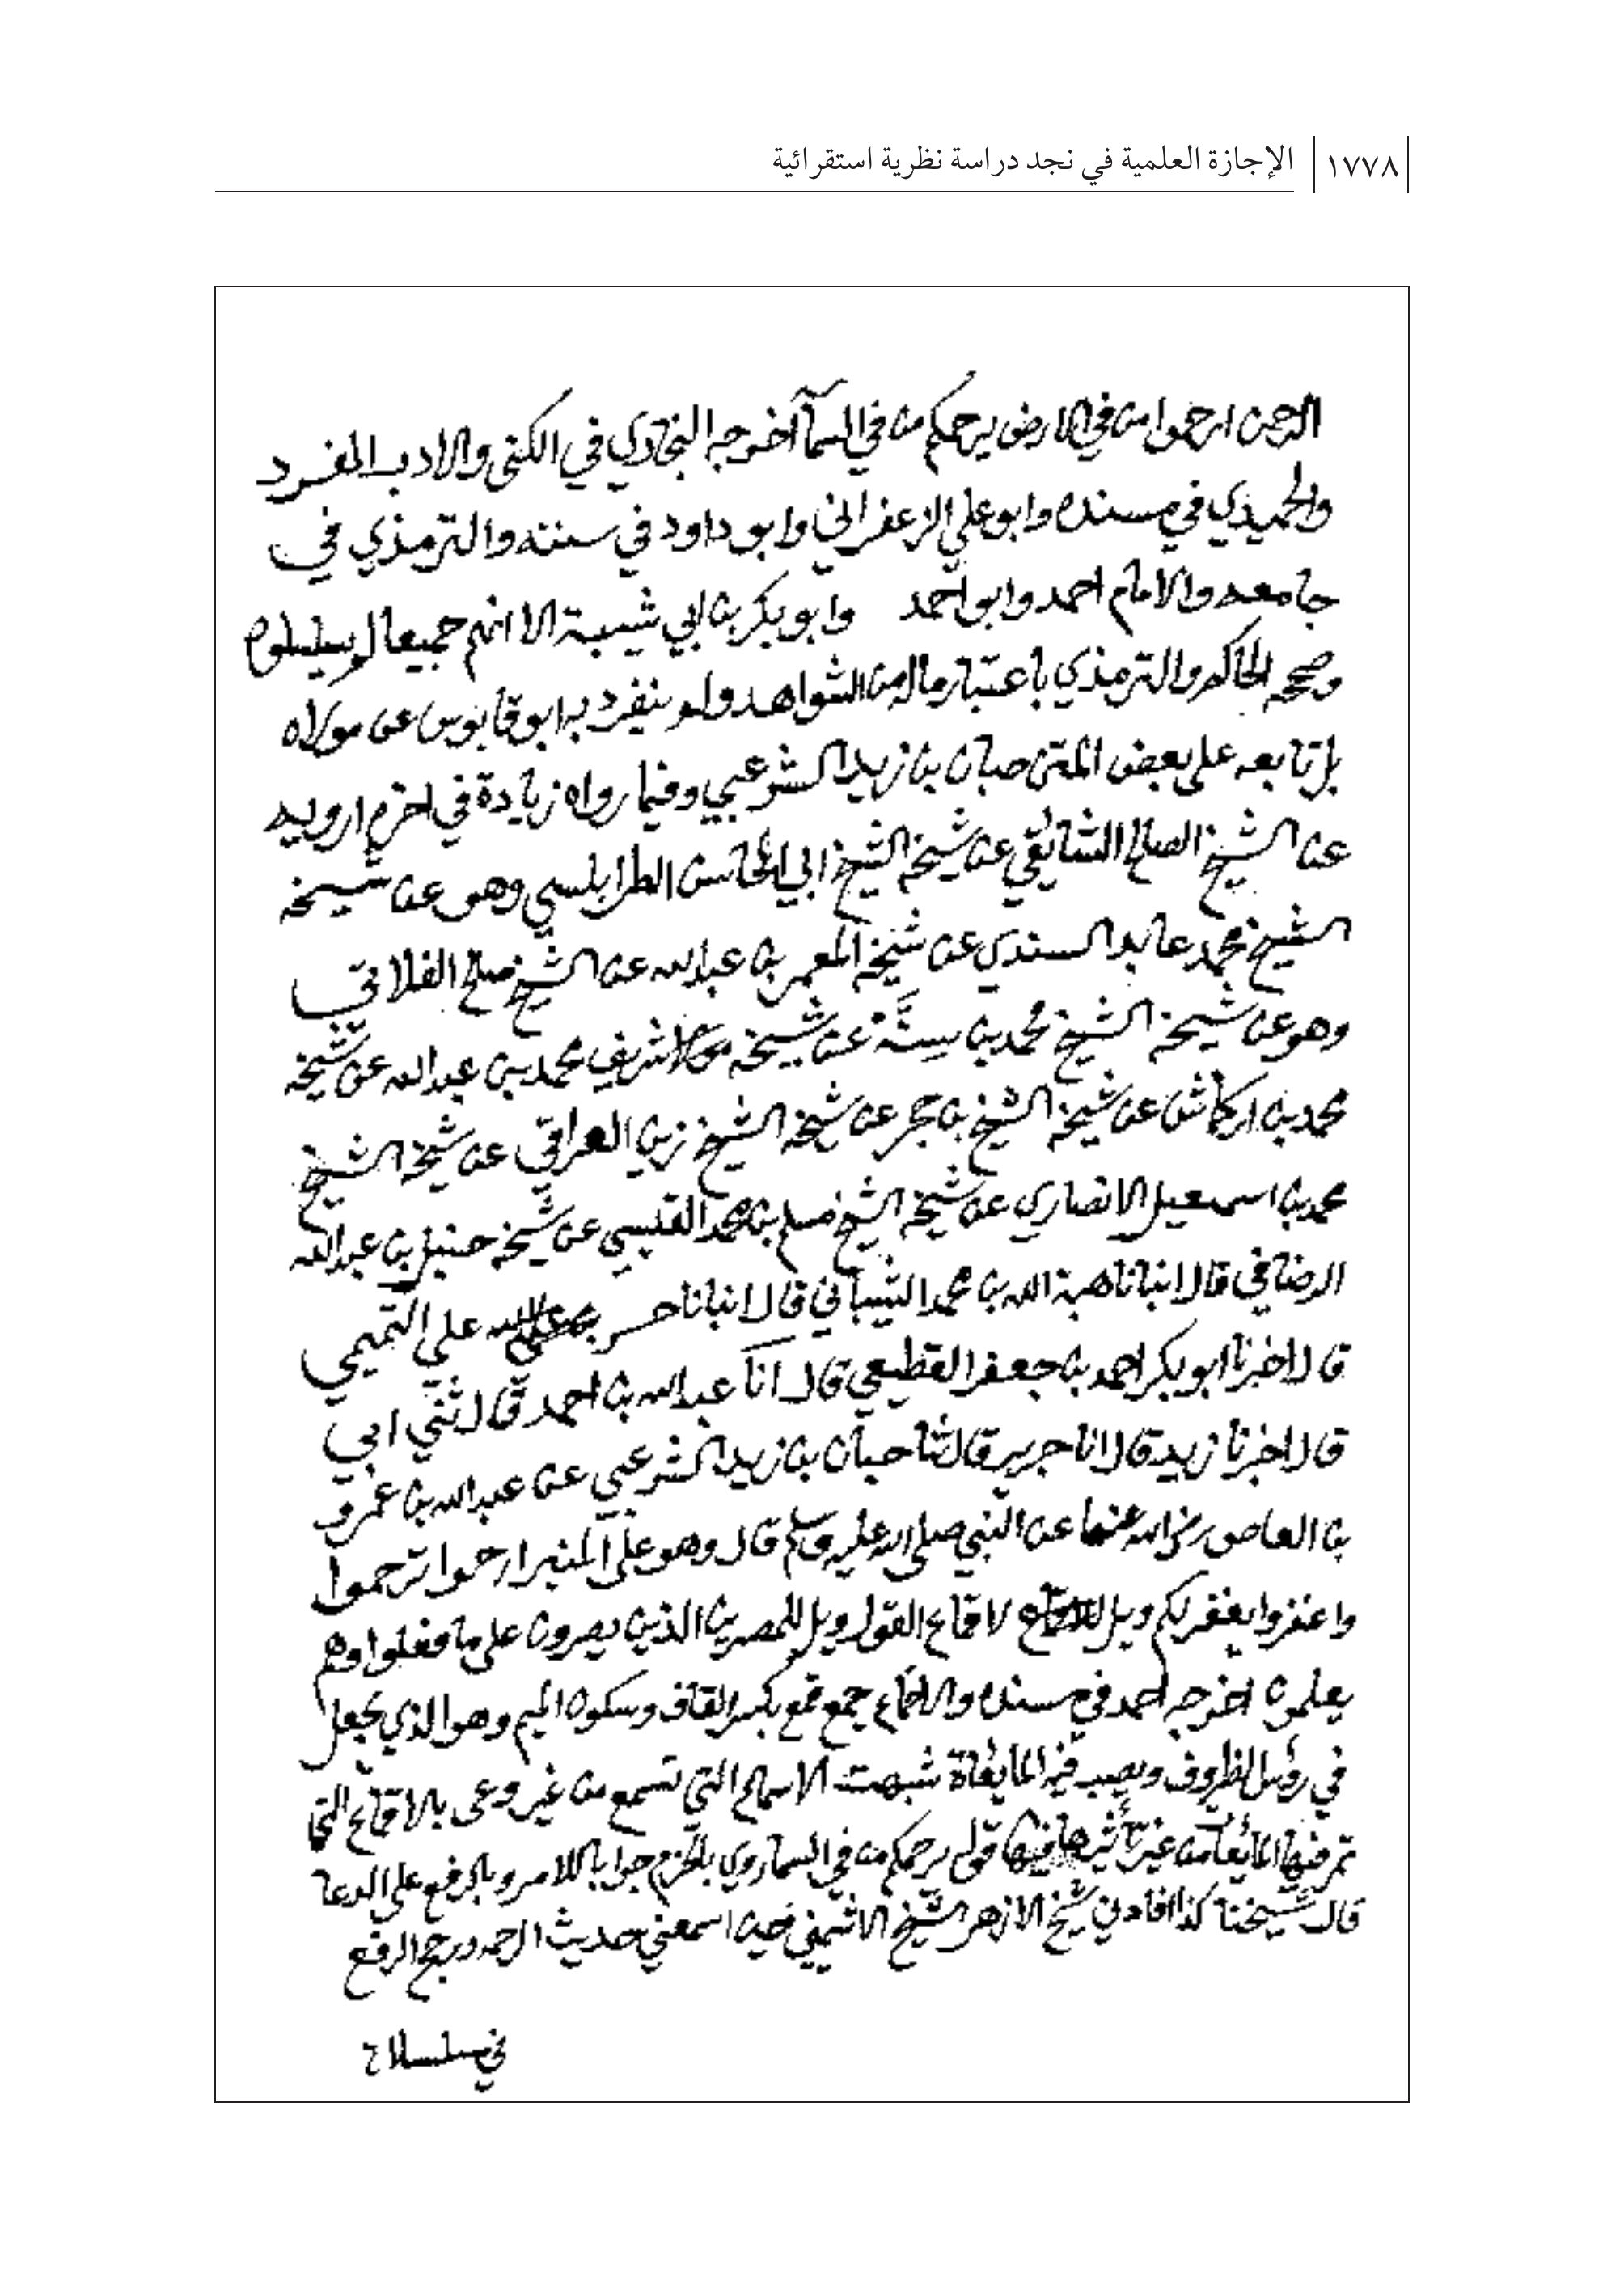 ١٧٧٨ الإجازة العلمية في نجد دراسة نظرية استقرائية
الرحمن ارحموا من في الارض يرحمكم من في السمآ اخرجه البخاري في الكنى والادب المفرد
والحميدي في مسنده وابو علي الزعفراني وابو داود في سننه والترمذي في
جامعه والامام احمد وابو احمد وابو بكر بن ابي شيبة الا انهم جميعا لم يسلسلوه
وصححه الحاكم والترمذي باعتبار ماله من الشواهد ولم ينفرد به ابو قابوس عن مولاه
بل تابعه على بعض المتن حبان بن زيد الشرعبي وفيما رواه زيادة في اخره ارويه
عن الشيخ الصالح عن شيخه الشيخ ابي المحاسن الطرابلسي وهو عن شيخه
الشيخ محمد عابد السندي عن شيخه المعمر بن عبدالله عن الشيخ صالح الفلاني
وهو عن شيخه الشيخ محمد بن سِنَّة عن شيخه مولاي الشريف محمد بن عبدالله عن شيخه
محمد بن اركماش عن شيخه الشيخ بن حجر عن شيخه الشيخ زين العراقي عن شيخه الشيخ
محمد بن اسمعيل الانصاري عن شيخه الشيخ مسلم بن محمد القيسي عن شيخه حنبل بن عبدالله
الرصافي قال انبانا هبة الله بن محمد الشيباني قال انبانا حسن بن علي التميمي
قال اخبرنا ابو بكر احمد بن جعفر القطيعي قال انآ عبدالله بن احمد قال ثني ابي
قال اخبرنا زيد قال انا جرير قال ثنا حبان بن زيد الشرعبي عن عبدالله بن عمرو
بن العاص رضي الله عنهما عن النبي صلى الله عليه وسلم قال وهو على المنبر ارحموا ترحموا
واغفروا يغفر لكم ويل لاقماع القول ويل للمصرين الذين يصرون على ما فعلوا وهم
يعلمون اخرجه احمد في مسنده والاقماع جمع قمع بكسر القاف وسكون الميم وهو الذي يجعل
في رؤس الظروف ويصب فيه المايعاة شبهت الاسماع التي تسمع من غير وعي بالاقماع التي
تمر فيها المايعات من غير تأثيرها فيها قوله يرحمكم من في السما روي بالجزم جوابا للامر وبالرفع على الدعا
قال شيخنا كذا افادني شيخ الازهر الشيخ حين اسمعني حديث الرحمه ورجح الرفع
في مسلسلات